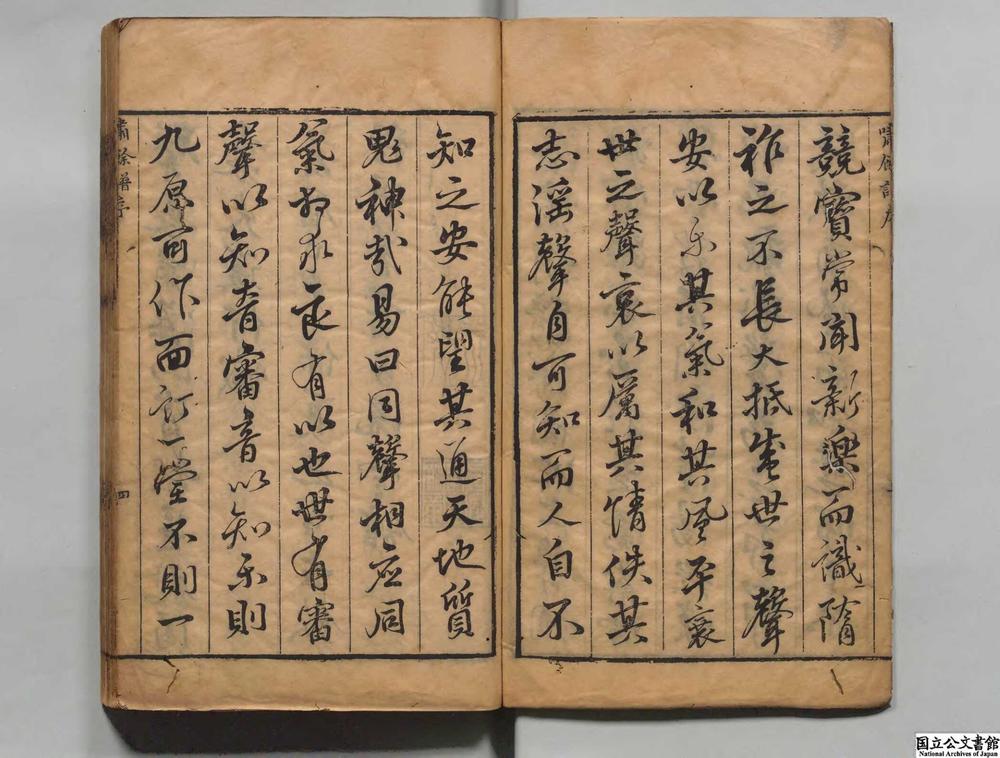 競寳常聞新樂而識隋
祚之不長大抵盛世之聲
安以乐其氣和其風平衰
世之聲哀以厲其情佚其
志淫聲自可知而人自不
知之安能望其通天地質
鬼神哉易曰同聲相应同
氣相求良有以也世有審
聲以知音審音以知乐則
九原可作面訂一堂不則一
嘯餘譜序
四
国立公文書館
National Archives of Japan